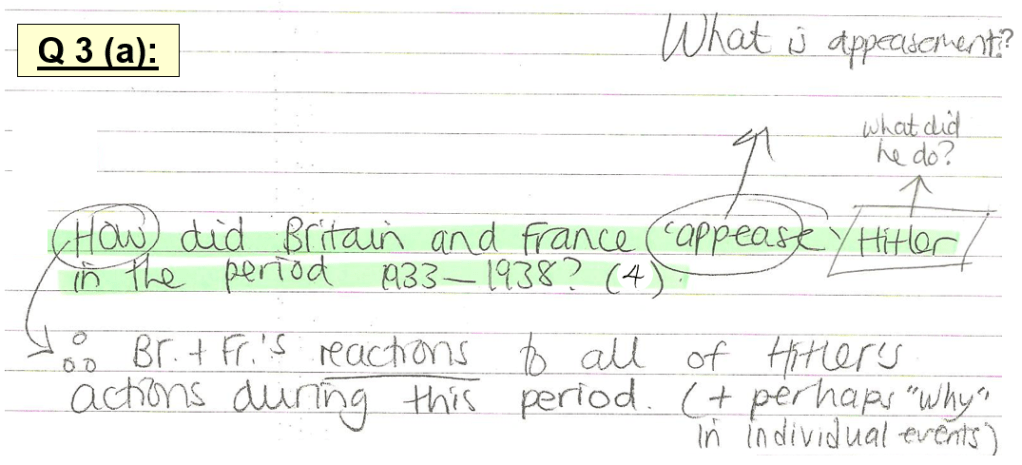 Q 3 (a):
What is appeasement?
what did
he do?
How did Britain and France 'appease' Hitler
in the period 1933-1938? (4)
∴ Br. + Fr.'s reactions to all of Hitler's
actions during this period. (+ perhaps "why"
in individual events)